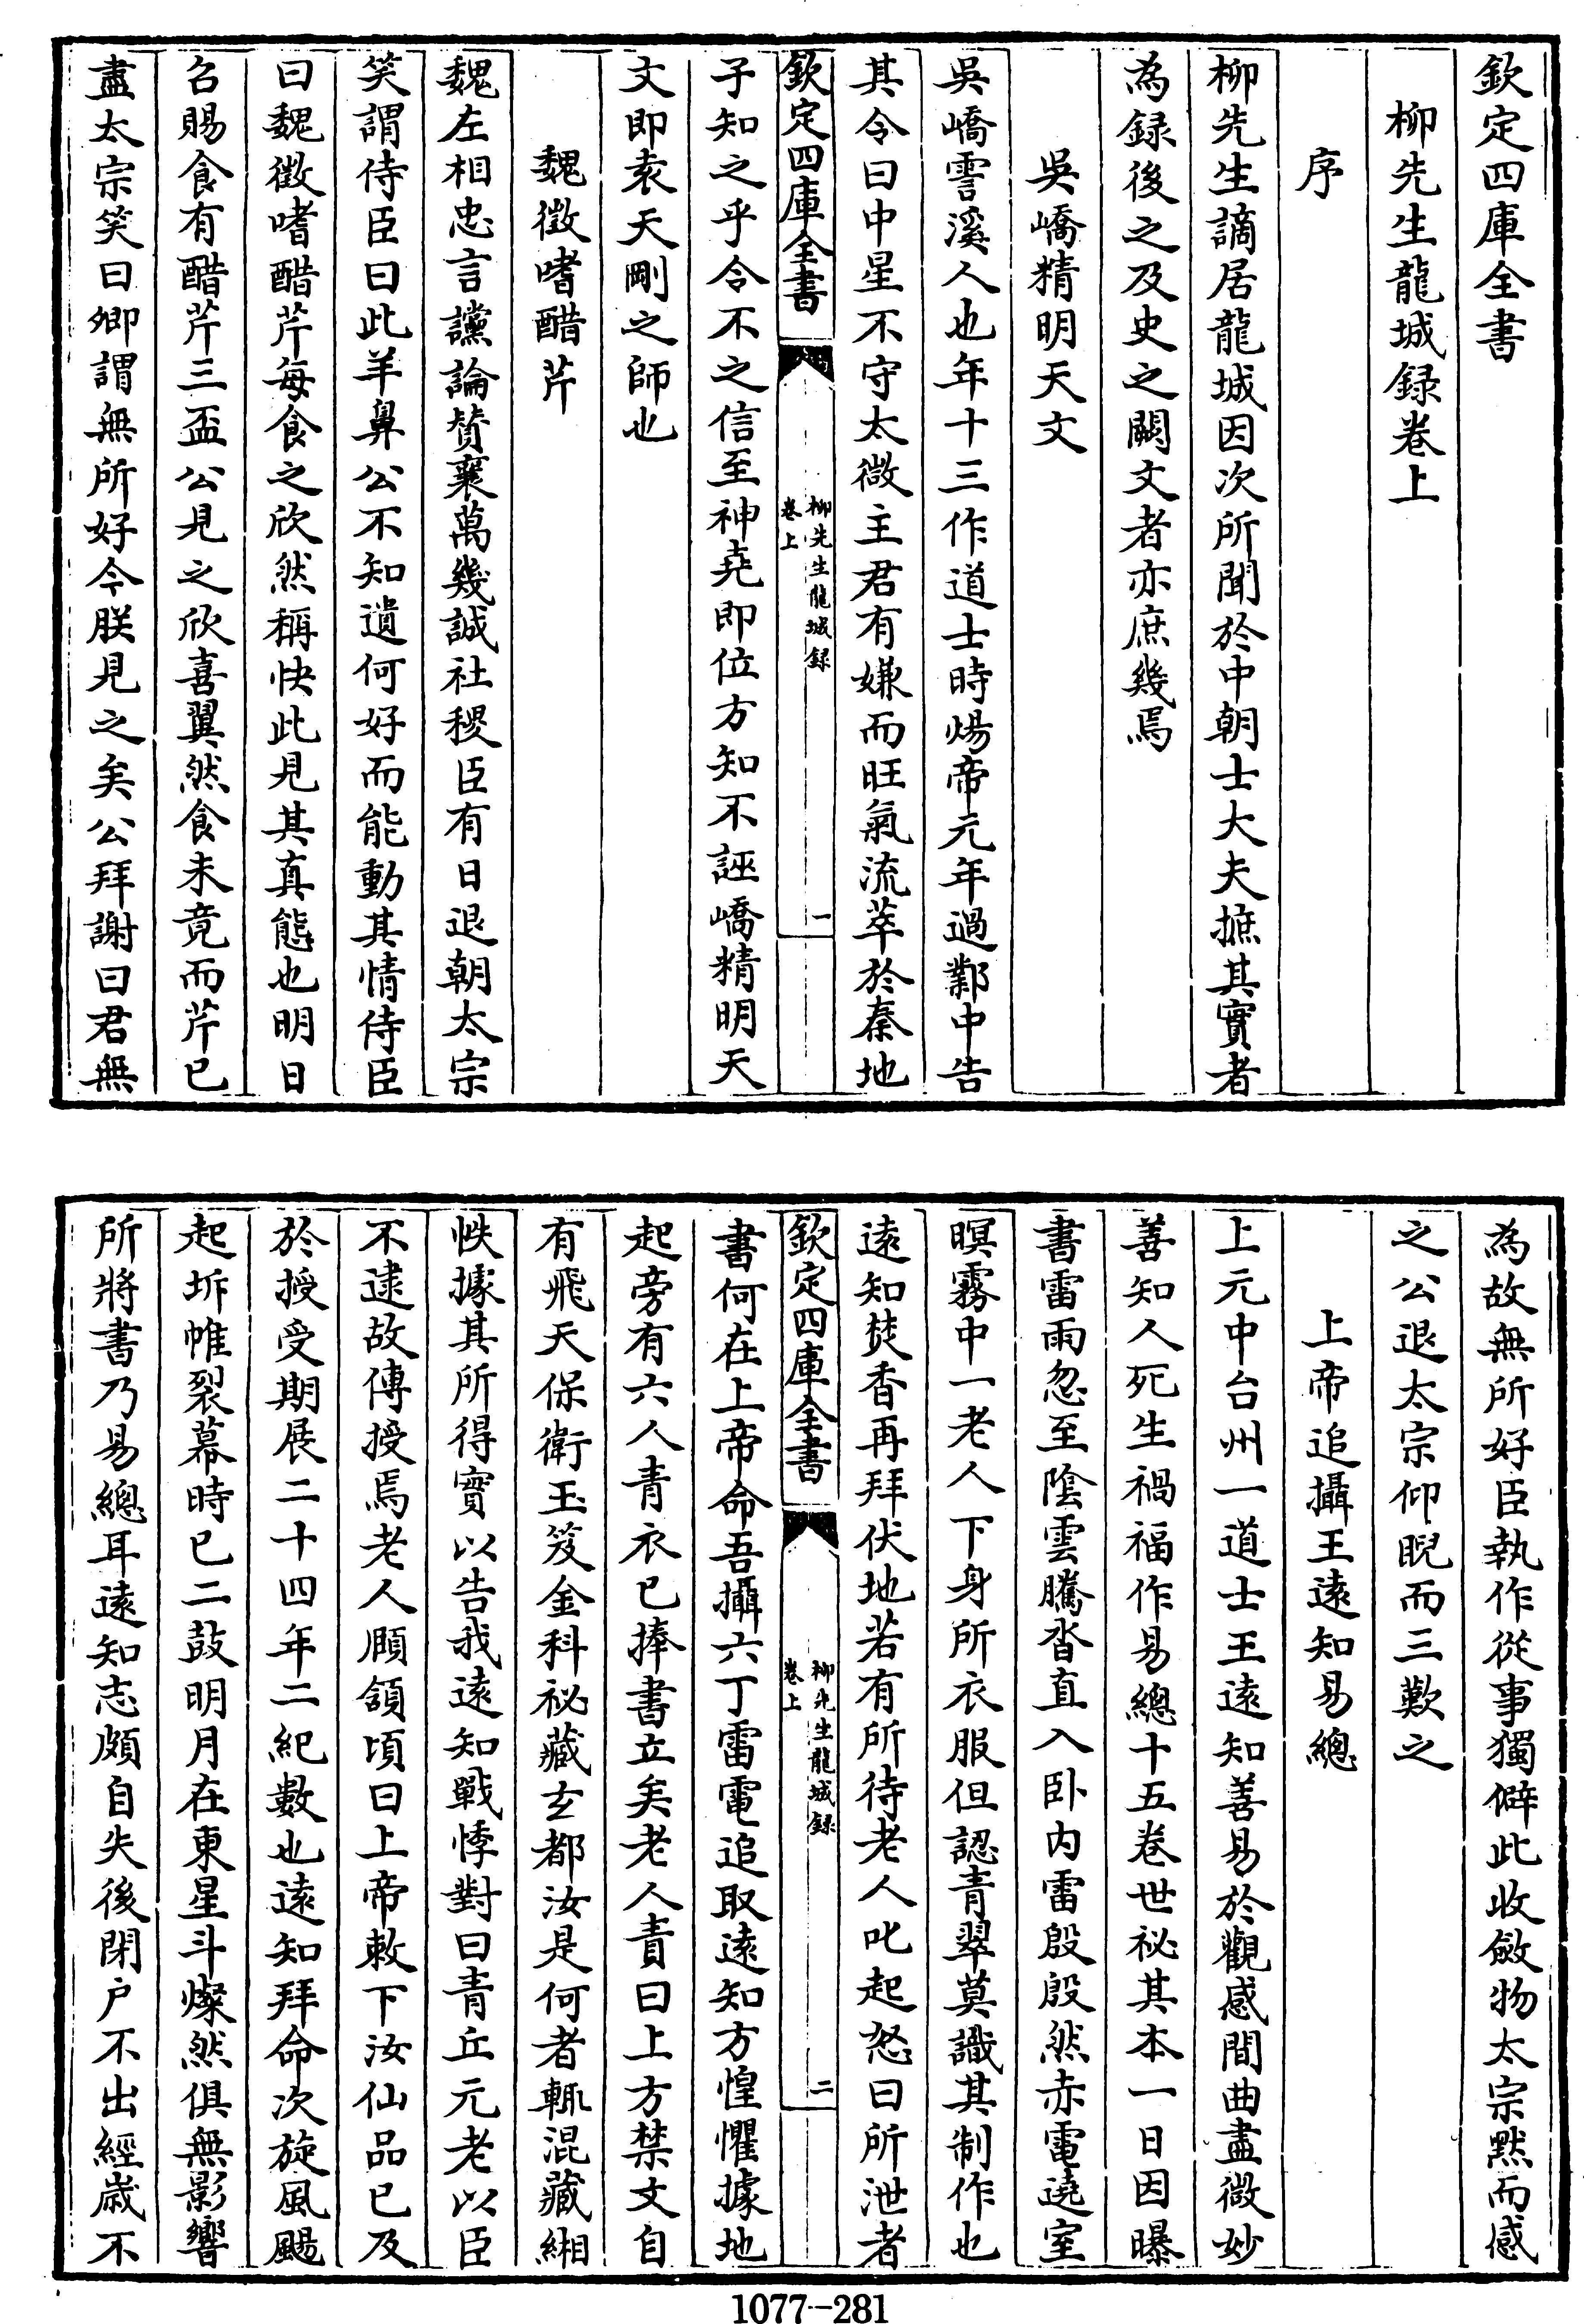 欽定四庫全書
柳先生龍城録卷上
序
柳先生謫居龍城因次所聞於中朝士大夫摭其實者
為録後之及史之闕文者亦庶幾焉
吳嶠精明天文
吳嶠霅溪人也年十三作道士時煬帝元年過鄴中告
其令曰中星不守太微主君有嫌而旺氣流萃於秦地
欽定四庫全書
柳先生龍城録
卷上
一
子知之乎令不之信至神堯即位方知不誣嶠精明天
文即袁天剛之師也
魏徵嗜醋芹
魏左相忠言讜論賛襄萬幾誠社稷臣有日退朝太宗
笑謂侍臣曰此羊鼻公不知遺何好而能動其情侍臣
曰魏徵嗜醋芹每食之欣然稱快此見其真態也明日
召賜食有醋芹三盃公見之欣喜翼然食未竟而芹已
盡太宗笑曰卿謂無所好今朕見之矣公拜謝曰君無
為故無所好臣執作從事獨僻此收斂物太宗黙而感
之公退太宗仰睨而三歎之
上帝追攝王遠知易總
上元中台州一道士王遠知善易於觀感間曲盡微妙
善知人死生禍福作易總十五卷世祕其本一日因曝
書雷雨忽至陰雲騰沓直入卧内雷殷殷然赤電遶室
暝霧中一老人下身所衣服但認青翠莫識其制作也
遠知焚香再拜伏地若有所待老人叱起怒曰所泄者
欽定四庫全書
柳先生龍城録
卷上
二
書何在上帝命吾攝六丁雷電追取遠知方惶懼據地
起旁有六人青衣已捧書立矣老人責曰上方禁文自
有飛天保衛玉笈金科祕藏玄都汝是何者輒混藏緗
帙據其所得實以告我遠知戰悸對曰青丘元老以臣
不逮故傳授焉老人頤頷頃曰上帝敕下汝仙品已及
於授受期展二十四年二紀數也遠知拜命次旋風颺
起坼帷裂幕時已二鼓明月在東星斗燦然俱無影響
所將書乃易總耳遠知志頗自失後閉户不出經歲不
1077-281